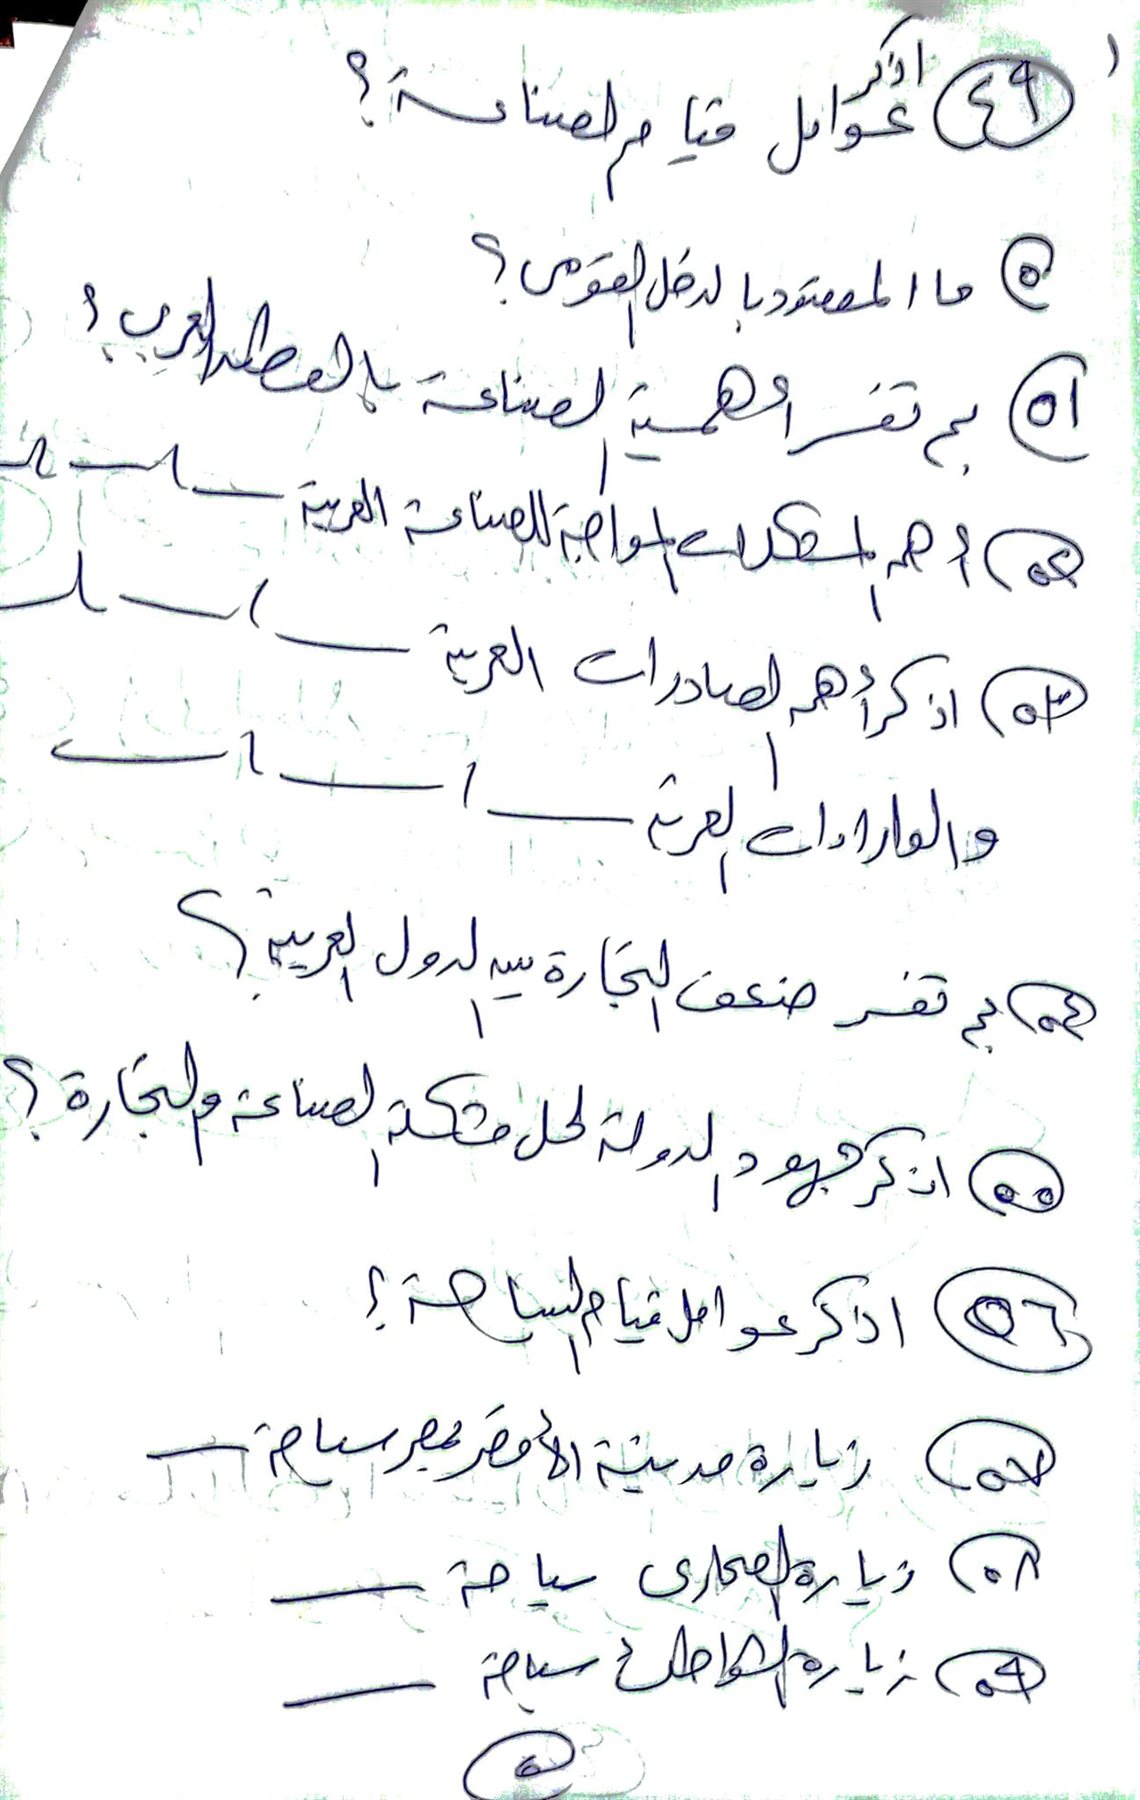 ٤٩ اذكر عوامل قيام الصناعة؟
٥٠ ما المقصود بالدخل القومى؟
٥١ بم تفسر أهمية الصناعة بالوطن العربي؟
٥٢ أهم المشكلات المواجهة للصناعة العربية ـــ ، ـــ ، ـــ
٥٣ اذكر أهم الصادرات العربية ـــ ، ـــ ، ـــ
والواردات العربية ـــ ، ـــ ، ـــ
٥٤ بم تفسر ضعف التجارة بين الدول العربية؟
٥٥ اذكر جهود الدولة لحل مشكلة الصناعة والتجارة؟
٥٦ اذكر عوامل قيام السياحة؟
٥٧ زيارة مدينة الأقصر بمصر سياحة ـــ
٥٨ زيارة الصحارى سياحة ـــ
٥٩ زيارة الشواطئ سياحة ـــ
٥